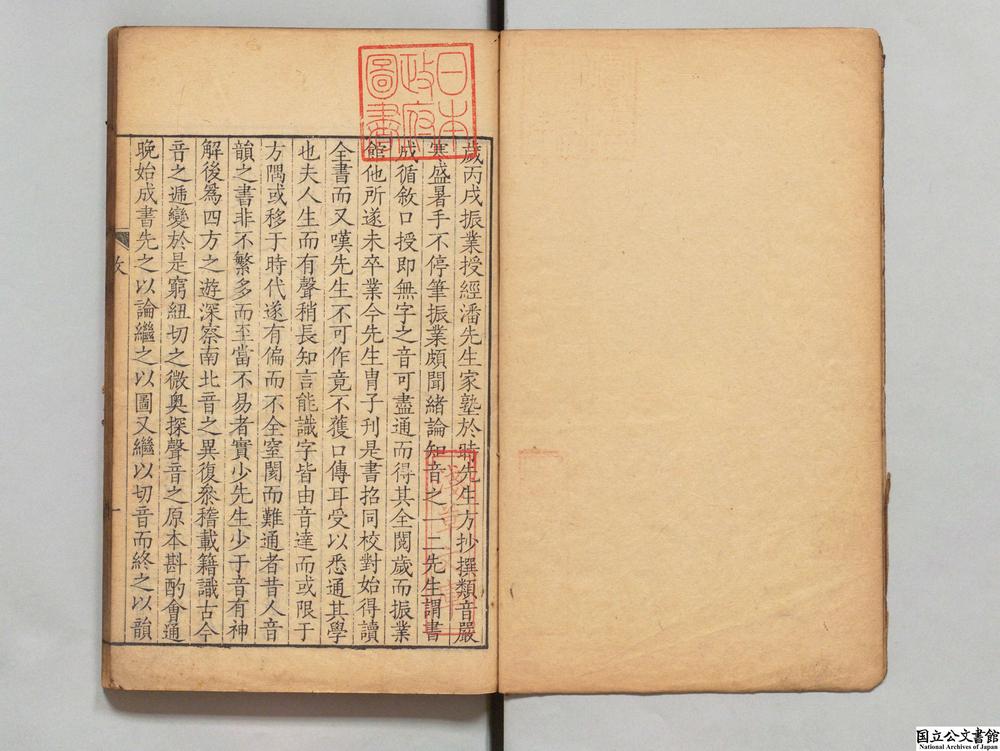 歲丙戌振業授經潘先生家塾於時先生方抄撰類音嚴
寒盛暑手不停筆振業頗聞緒論知音之一二先生謂書
成循敘口授即無字之音可盡通而得其全閱歲而振業
館他所遂未卒業今先生冑子刊是書招同校對始得讀
全書而又嘆先生不可作竟不獲口傳耳受以悉通其學
也夫人生而有聲稍長知言能識字皆由音達而或限于
方隅或移于時代遂有偏而不全窒閡而難通者昔人音
韻之書非不繁多而至當不易者實少先生少于音有神
解後爲四方之遊深察南北音之異復叅稽載籍識古今
音之遞變於是窮紐切之微奧探聲音之原本斟酌會通
晩始成書先之以論繼之以圖又繼以切音而終之以韻
一
日本
政府
圖書
国立公文書館
National Archives of Japan